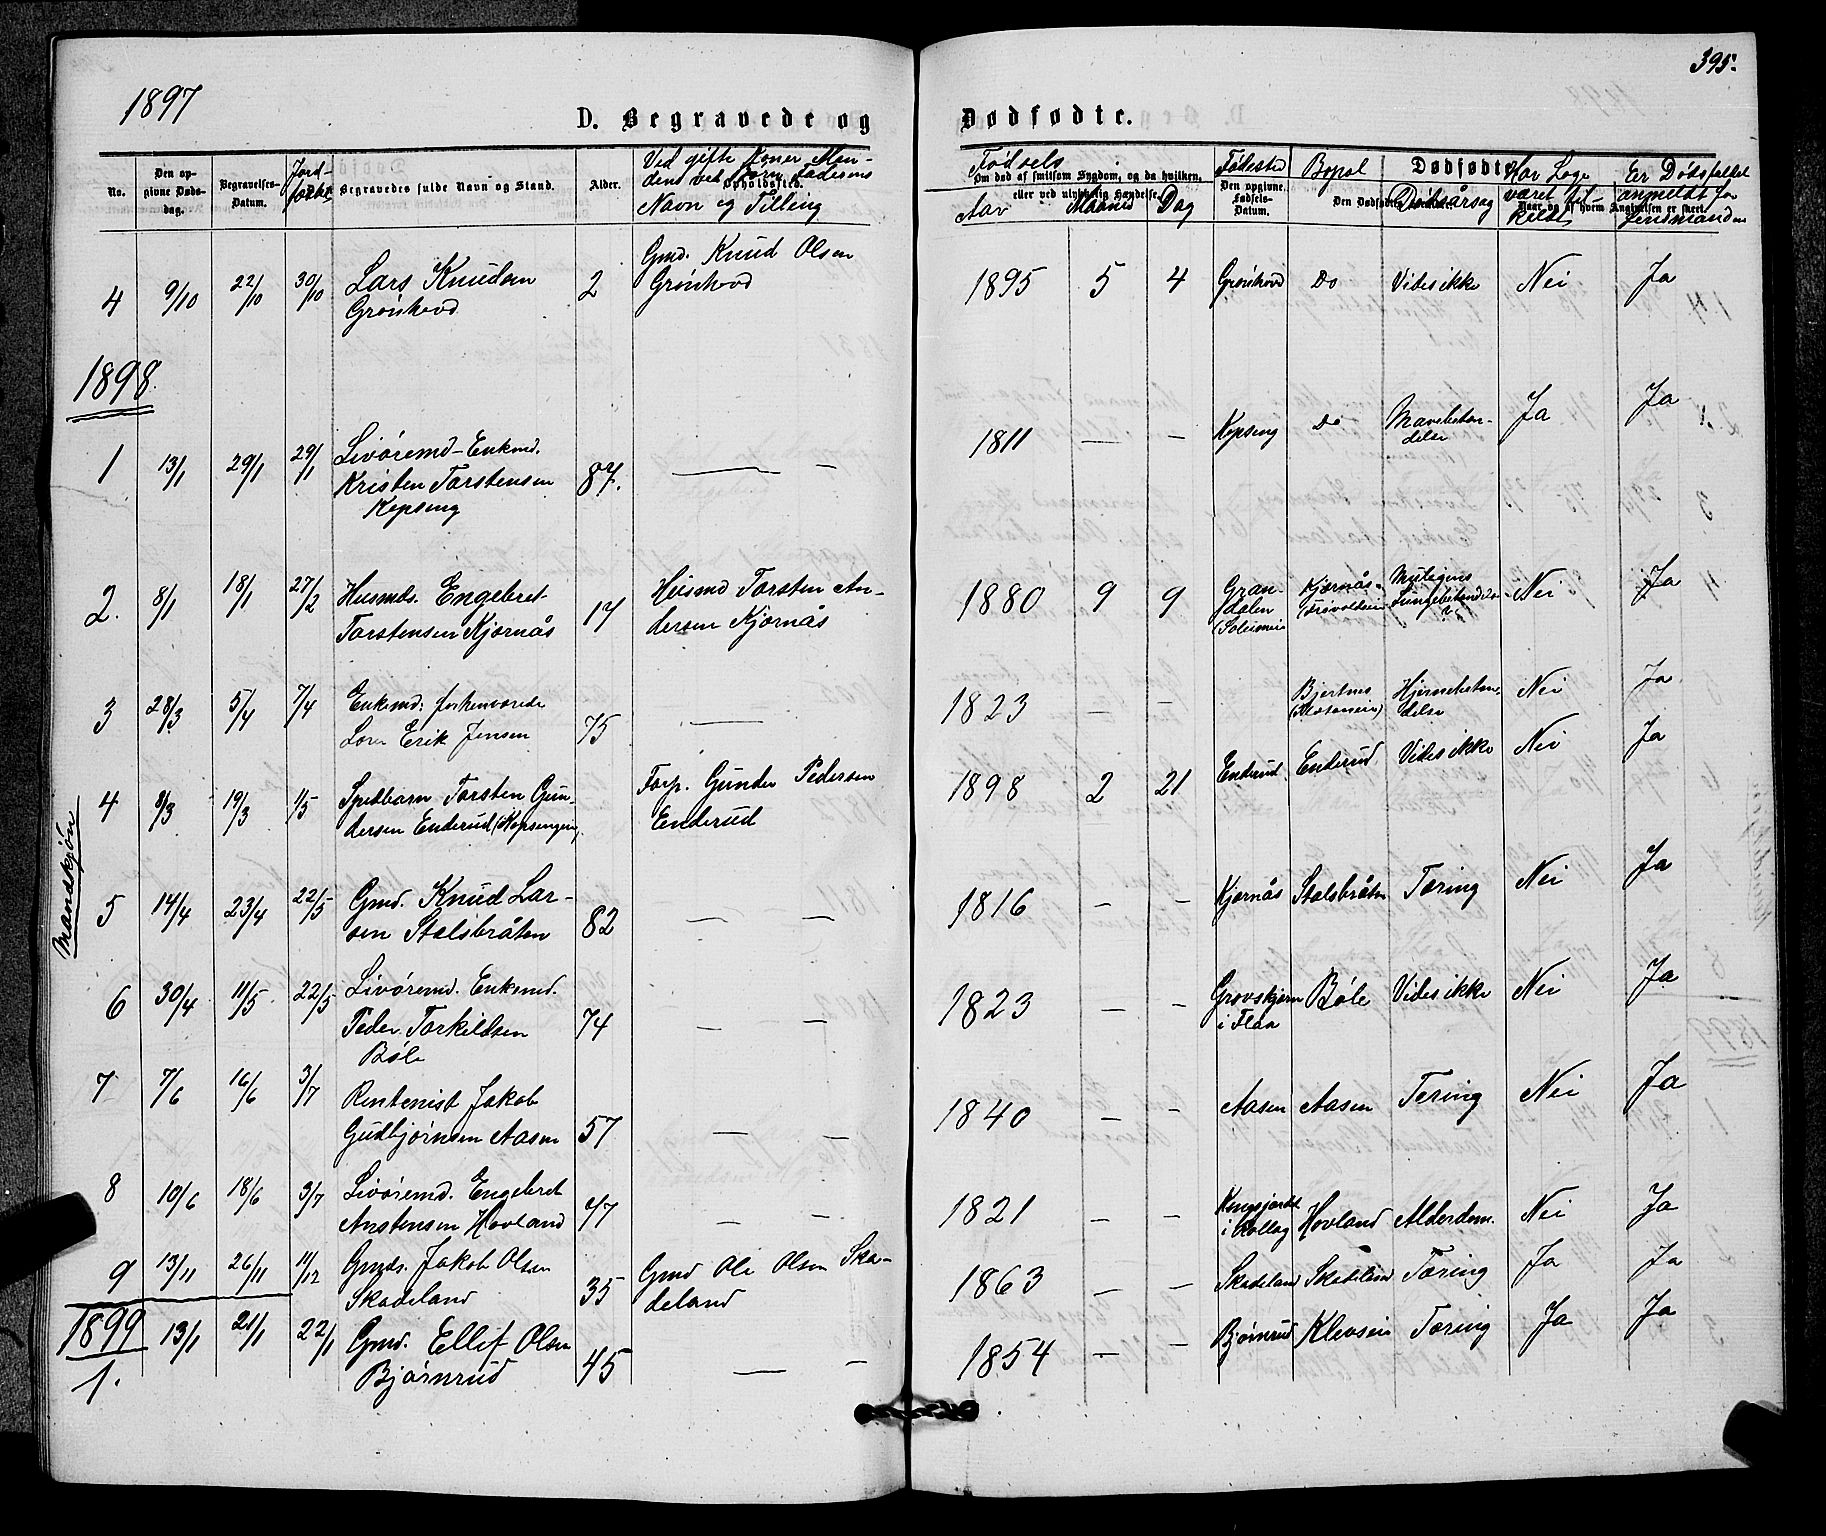 1897
395.
D. Begravede og Dødfødte.
No.
Den opgivne Dødsdag.
Begravelses-Datum.
Jordfæstet
Begravedes fulde Navn og Stand.
Alder.
Ved gifte Koner Mandens ved Børn Faderens Navn og Stilling
Opholdssted.
Fødsels
Om død af smitsom Sygdom, og da hvilken,
eller ved ulykkelig Hændelse.
Aar Maaned Dag
Fødested
Den opgivne Fødsels-Datum.
Bopæl
Dødfødte
Dødsårsag
Har Læge været tilkaldt
Er Dødsfaldet anmeldt for Lensmanden
4 9/10 22/10 30/10 Lars Knudsen Grønhovd 2 Gmd. Knud Olsen Grønhovd 1895 5 4 Grønhovd Do Vides ikke Nei Ja
1898.
1 13/1 29/1 29/1 Livøremd-Enkmd. Kristen Torstensen Kopseng 87. — — 1811 — — Kopseng Do Mavebetændelse Ja Ja
2. 8/1 18/1 27/2 Husmds. Engebret Torstensen Kjørnås 17 Husmd Torsten Andersen Kjørnås 1880 9 9 Grandalen (Soleimeie Kjørnås- Lungebetændelse ? Nei Ja
3 28/3 5/4 7/4 Enkemd. forhenværede Erik Jensen 75 — 1823 — — Bjertnes Hjernebetændelse Nei Ja
4 8/3 19/3 1/5 Spedbarn Torsten Gundersen Enderud (Kopsengeie) Forp. Gunder Pedersen Enderud 1898 2 21 Enderud Enderud Vides ikke Nei Ja
Mandkjøn
5 14/4 23/4 22/5 Gmd. Knud Larsen Stalsbråten 82 — — 1816 — — Kjørnås Stalsbråten Tæring Nei Ja
6 30/4 11/5 22/5 Livøremd. Enkemd. Peder Torkildsen Bøle 74 — — 1823 — — Grovskjørn i Flaa Bøle Vides ikke Nei Ja
7 7/6 16/6 3/7 Rentenist Jakob Gudbjørnsen Aasen 57 — — 1840 — — Aasen Aasen Tæring Nei Ja
8 10/6 18/6 3/7 Livøremd. Engebret Anstensen Hovland 77 — — 1821 — — i Rollag Hovland Alderdom. Nei Ja
9 13/11 26/11 11/12 Gmds. Jakob Olsen Skadeland 35 Gmd Ole Olsen Skadeland 1863 — — Skadeland Skadeland Tæring Ja Ja
1899
1. 13/1 21/1 22/1 Gmd. Ellif Olsen Bjørnrud 45 — — 1854 — — Bjørnrud Klevseie Tæring Ja Ja